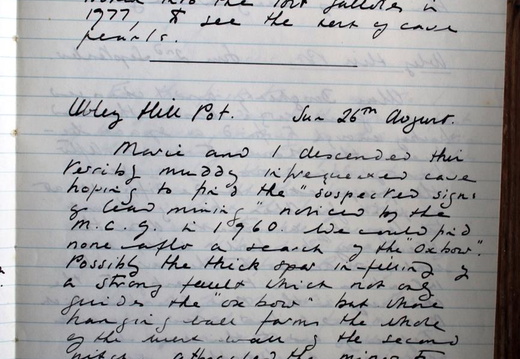 into the lost galleries in
1977, & see the nest of cave
pearls.
Ubley Hill Pot. Sun 26th August.
Marie and I descended this
terribly muddy infrequented cave
hoping to find the "suspected signs
of lead mining" noticed by the
M.C.G. in 1960. We could find
none after a search of the "Oxbow".
Possibly the thick spar in-filling of
a strong fault which not only
guides the "oxbow" but whose
hanging wall forms the whole
of the west wall of the second
pitch attracted the miners to